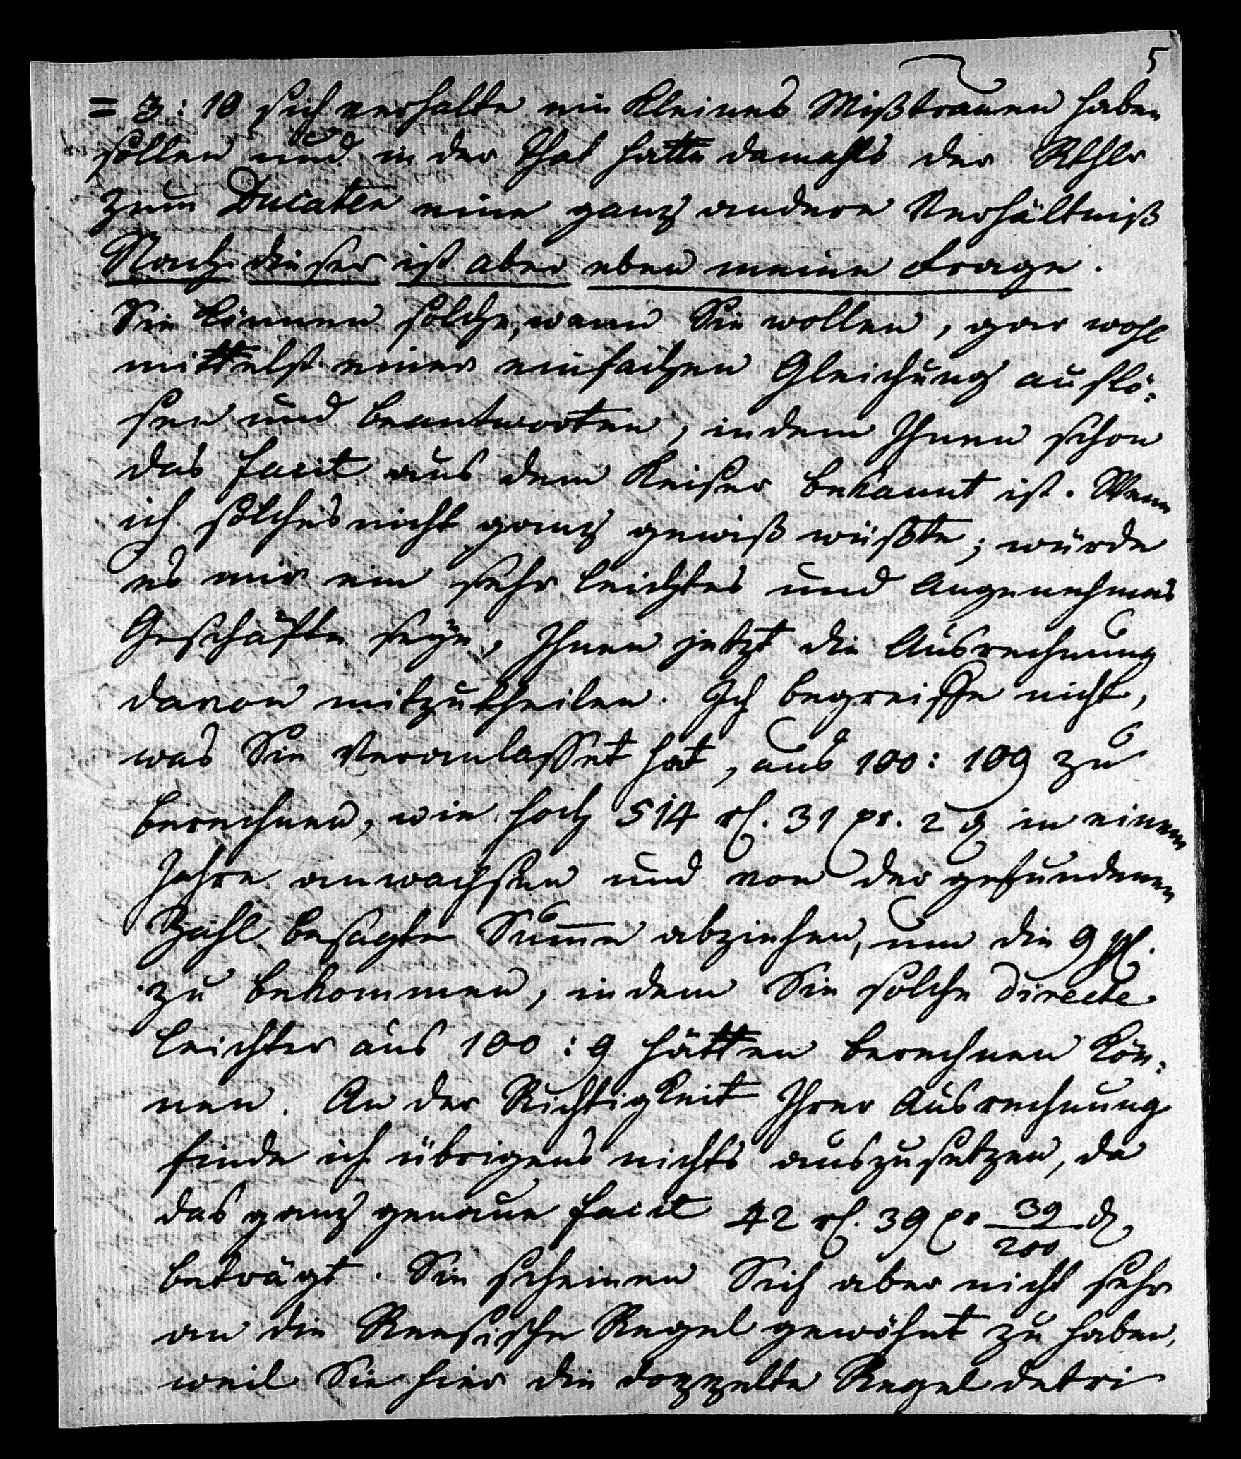 5
= 3 : 10 sich verhalte ein kleines Mißtrauen haben
sollen und in der That hatte damahls der Rthlr
zum Ducaten eine ganz andere Verhältniß
Nach dieser ist aber eben meine Frage.
Sie können solche, wann Sie wollen, gar wohl
mittelst einer einfachen Gleichung auflö:
sen und beantworten, indem Ihnen schon
das facit aus dem Keiser bekannt ist. Wenn
ich solches nicht ganz gewiß wüßte; würde
es mir ein sehr leichtes und Angenehmes
Geschäfte seyn, Ihnen jetzt die Ausrechnung
davon mitzutheilen. Ich begreiffe nicht,
was Sie Veranlasset hat, aus 100 : 109 zu
berechnen, wie hoch 514 rl. 31 gr. 2 d in einem
Jahre anwachsen und von der gefundenen
Zahl besagte Sum̅e abziehen, um die 9 pf.
zu bekommen, indem Sie solche directe
leichter aus 100 : 9 hätten berechnen kön:
nen. An der Richtigkeit Ihrer Ausrechnung
finde ich übrigens nichts auszusetzen, da
das ganz genaue facit 42 rl. 39 gr 39/200 d,
beträgt. Sie scheinen Sich aber nicht sehr
an die Reesische Regel gewöhnt zu haben,
weil Sie hier die doppelte Regel detri